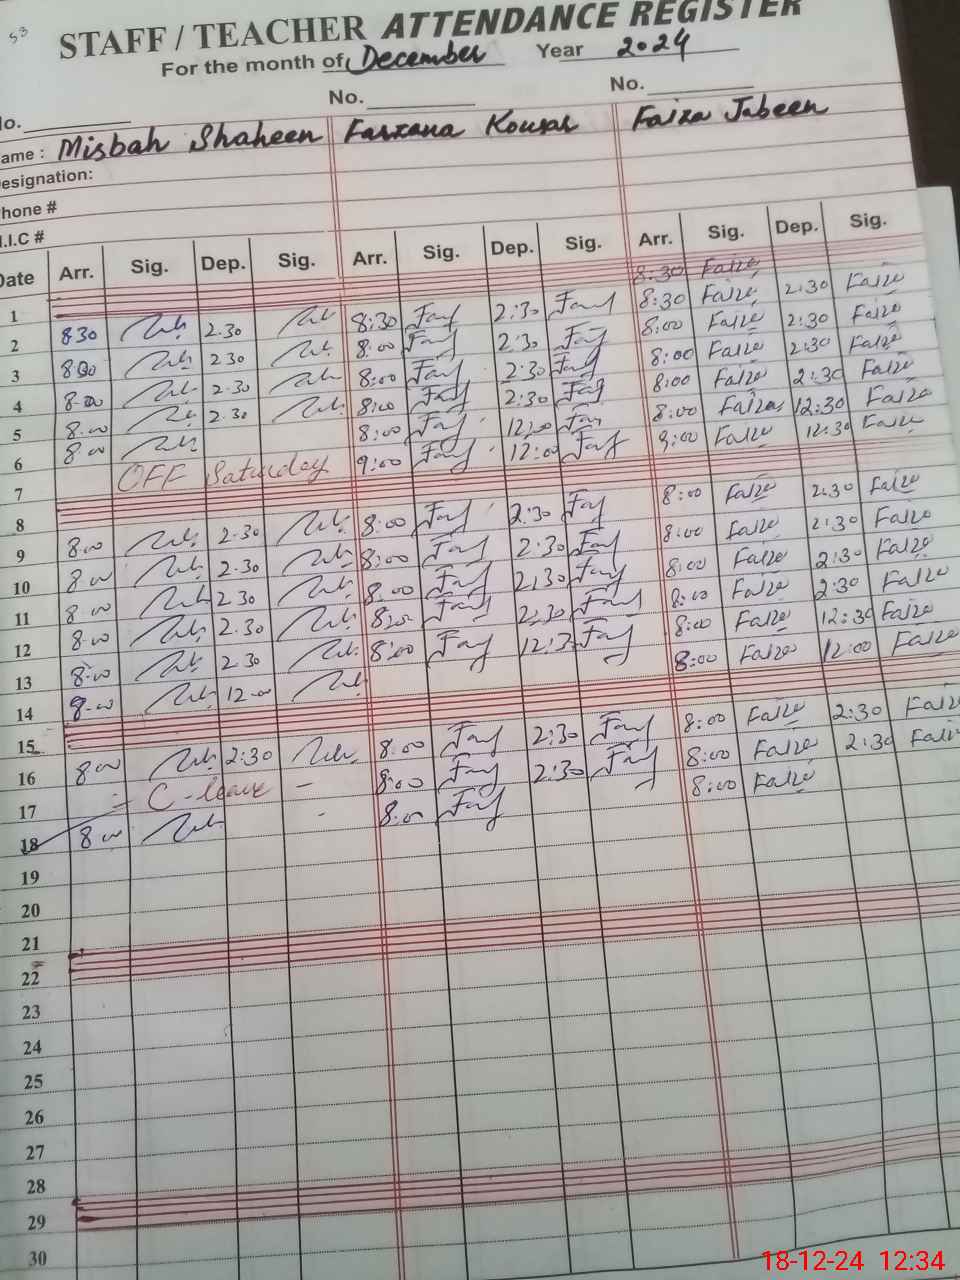 53
STAFF / TEACHER ATTENDANCE REGISTER
For the month of December Year 2024
No. No. No.
Name : Misbah Shaheen Farzana Kousar Faiza Jabeen
Designation:
Phone #
N.I.C #
Date Arr. Sig. Dep. Sig. Arr. Sig. Dep. Sig. Arr. Sig. Dep. Sig.
8:30 Faiza
1
2 830 2.30 8:30 2:30 8:30 Faiza 2:30 Faiza
3 800 230 8:00 2:30 8:00 Faiza 2:30 Faiza
4 8.00 2.30 8:00 2:30 8:00 Faiza 2:30 Faiza
5 8.00 2.30 8:00 2:30 8:00 Faiza 2:30 Faiza
6 8.00 8:00 8:00 Faiza 12:30 Faiza
7 OFF Saturday 9:00 12:00 9:00 Faiza 12:30 Faiza
8
9 8.00 2.30 8:00 2:30 8:00 Faiza 2:30 Faiza
10 8.00 2.30 8:00 2:30 8:00 Faiza 2:30 Faiza
11 8.00 2.30 8:00 2:30 8:00 Faiza 2:30 Faiza
12 8.00 2.30 8:00 2:30 8:00 Faiza 2:30 Faiza
13 8.00 2.30 8:00 12:3 8:00 Faiza 12:30 Faiza
14 8.00 12.00 8:00 Faiza 12:00 Faiza
15
16 8.00 2:30 8:00 2:30 8:00 Faiza 2:30 Faiza
17 C-leave - 8:00 2:30 8:00 Faiza 2:30 Faiza
18 8.00 8:00 8:00 Faiza
19
20
21
22
23
24
25
26
27
28
29
30
18-12-24 12:34